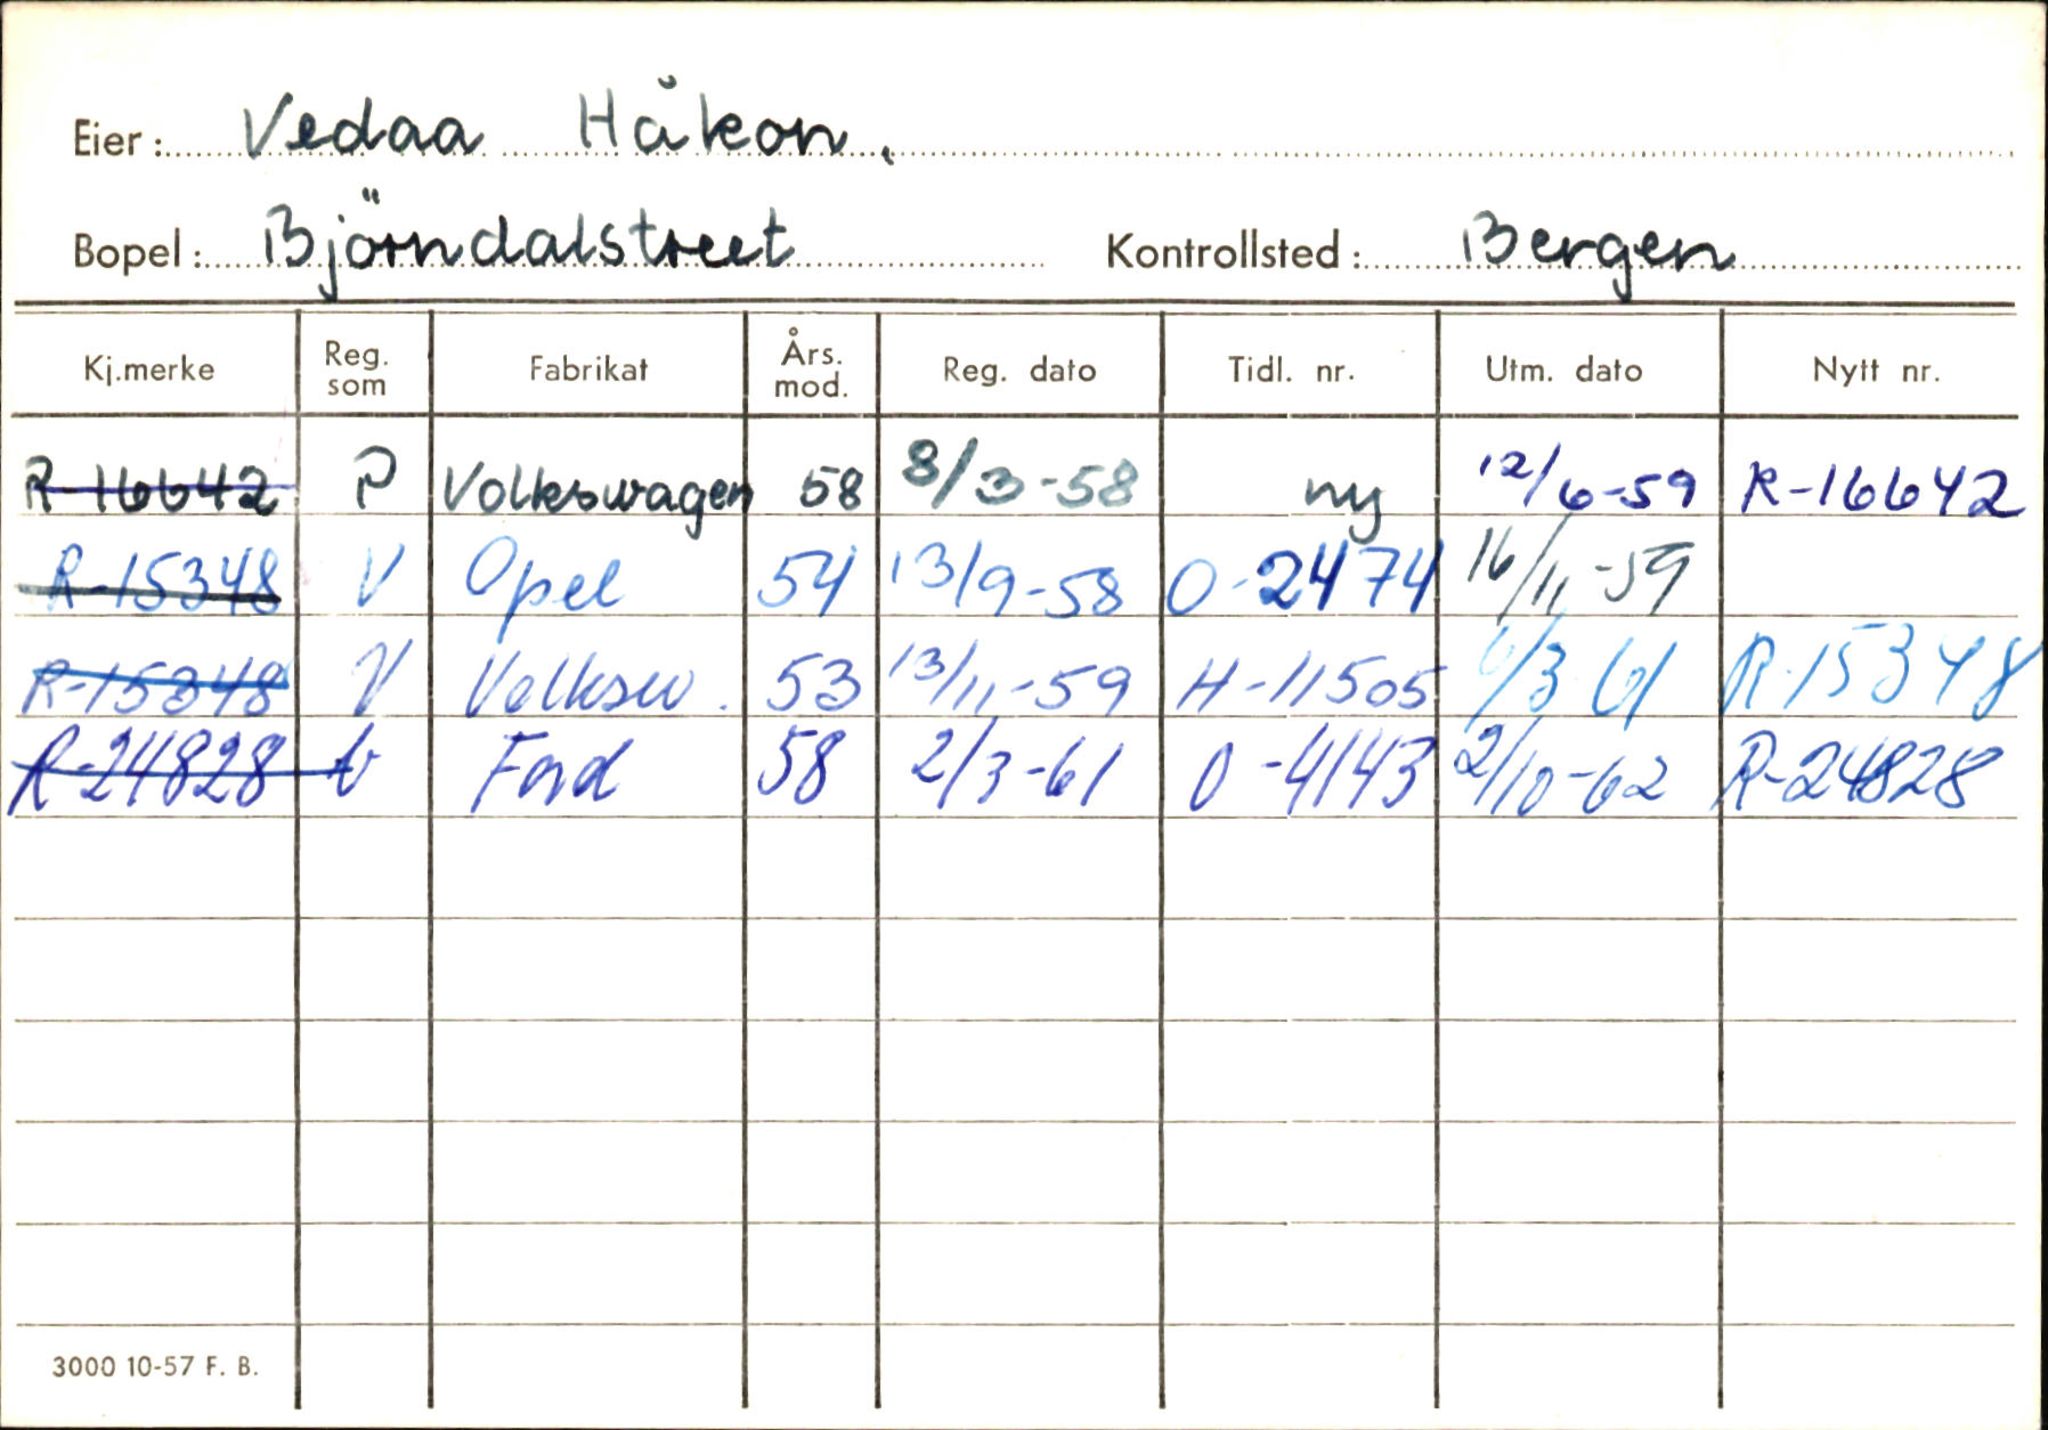 Eier: Vedaa Håkon.
Bopel: Björndalstreet Kontrollsted: Bergen
Kj.merke Reg. som Fabrikat Års. mod. Reg. dato Tidl. nr. Utm. dato Nytt nr.
R-16642 P Volkswagen 58 8/3-58 ny 12/6-59 R-16642
R-15348 V Opel 54 13/9-58 O-2474 16/11-59
R-15348 V Volksw. 53 13/11-59 H-11505 6/3 61 R-15348
R-24828 Ford 58 2/3-61 O-4143 2/10-62 R-24828
3000 10-57 F. B.